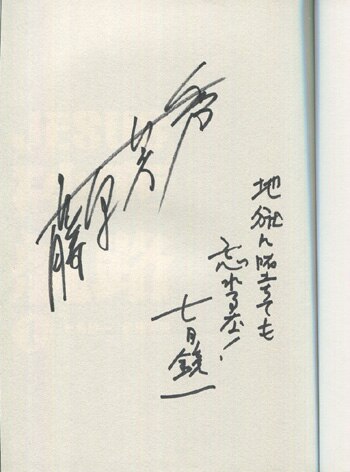 地獄に堕ちても
忘れるな!
七月鏡一
藤原芳秀